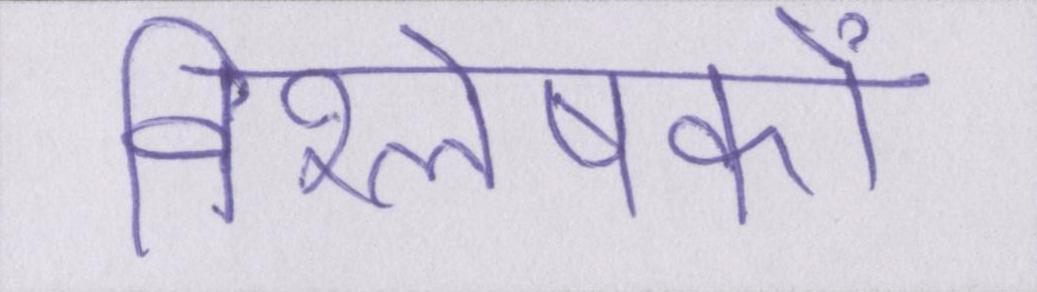 विश्लेषकों